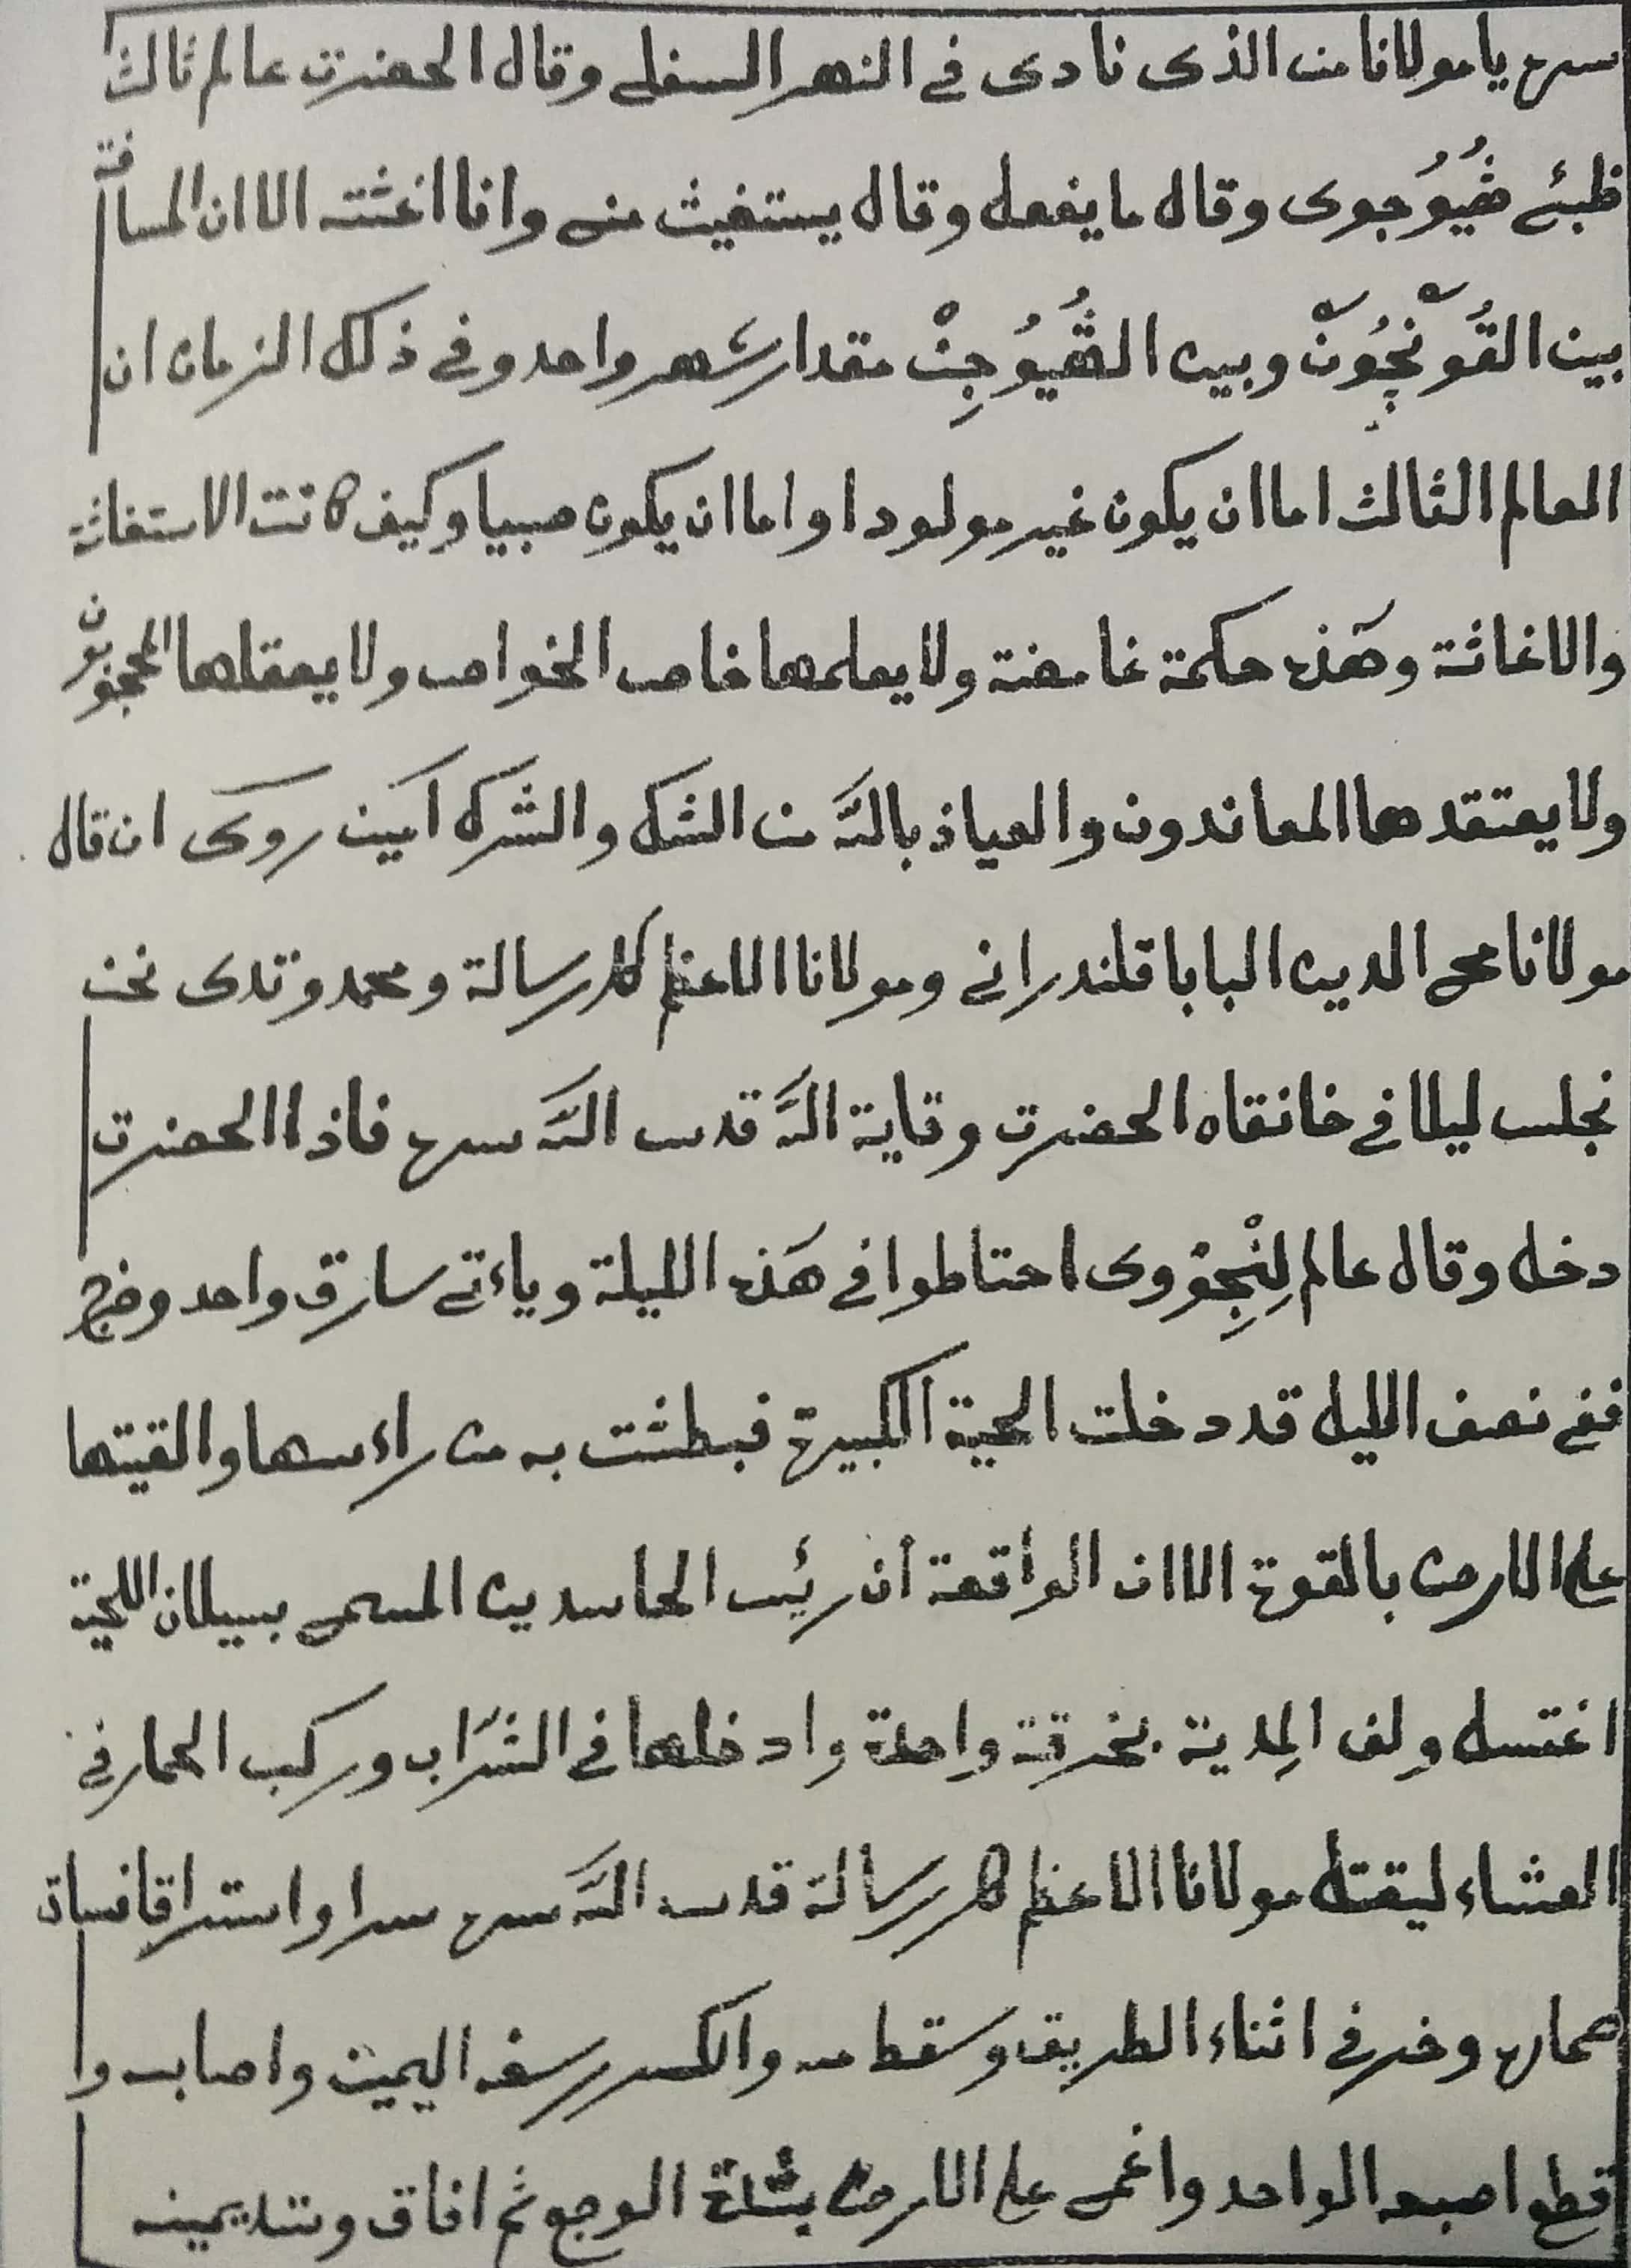 سره يا مولانا من الذى نادى فى النهر السفلى وقال الحضرت عالم ثالث
ظبئے جوى وقال ما يفعل وقال يستغيث منى وانا اغثته الا ان المسافة
بين القُونْجُونْ وبين مقدار شهر واحد وفى ذلك الزمان ان
العالم الثالث اما ان يكون غير مولود او اما ان يكون صبيا وكيف كانت الاستغاثة
والاغاثة وهذه حكمة غامضة ولا يعلمها خاص الخواص ولا يعقلها المحجوبون
ولا يعتقدها المعاندون والعياذ بالله من الشك والشرك آمين روى ان قال
مولانا محى الدين البابا قلندرانى ومولانا الاعظم كار رسالة ومحمد وتدى نحن
نجلس ليلا فى خانقاه الحضرت وقاية الله قدس الله سره فاذا الحضرت
دخل وقال عالم احتاطوا فى هذه الليلة وياءتى سارق واحد وخرج
ففى نصف الليل قد دخلت الحية الكبيرة فبطشت به من راءسها والقيتها
على الارض بالقوة الا ان الواقعة أن رئيس الحاسدين المسمى بسيلان اللحية
اغتسل ولف المدية بخرقة واحدة وادخلها فى الشراب وركب الحمار فى
العشاء ليقتل مولانا الاعظم كار رسالة قدس الله سره سرا واستراقا فساق
حماره وخر فى اثناء الطريق وسقط منه وانكسر رسغه اليمين واصابه وا
قطع اصبعه الواحد واغمى على الارض بشدة الوجع ثم افاق وشد يمينه